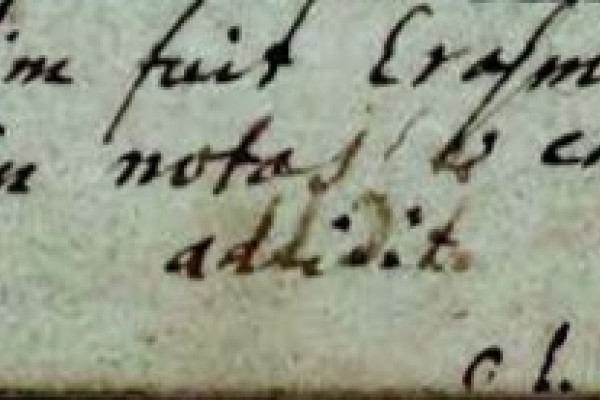 im fuit Erasm
in notas &
addidit.
C h.